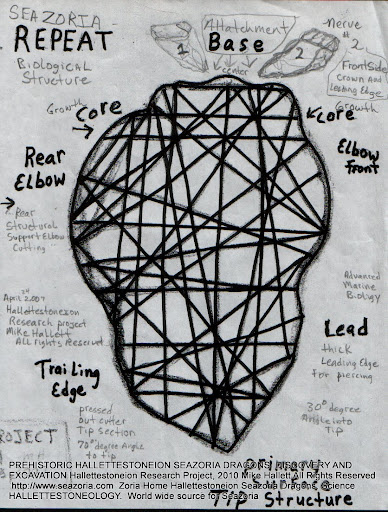 SEAZORIA
REPEAT
Biological
Structure
Attatchment
Base
center
1
2
Nerve
# 2
Front Side
Crown and
Leading Edge
Growth
Growth
Core
Core
Rear
Elbow
Elbow
Front
Rear
Structural
Support Elbow
Cutting
Advanced
Marine
Biology
April 24 2007
Hallettestoneion
Research project
Mike Hallett
All rights Reserved
Lead
thick
Leading Edge
for piercing
Trailing
Edge
pressed
out outer
Tip Section
70° degree Angle
to tip
30° degree
Angle into
Tip
PROJECT
Primary
Tip Structure
PREHISTORIC HALLETTESTONEION SEAZORIA DRAGONS, DISCOVERY AND
EXCAVATION Hallettestoneion Research Project, 2010 Mike Hallett All Rights Reserved
http://www.seazoria.com Zoria Home Hallettestoneion Seazoria Dragons, Science
HALLETTESTONEOLOGY. World wide source for Seazoria